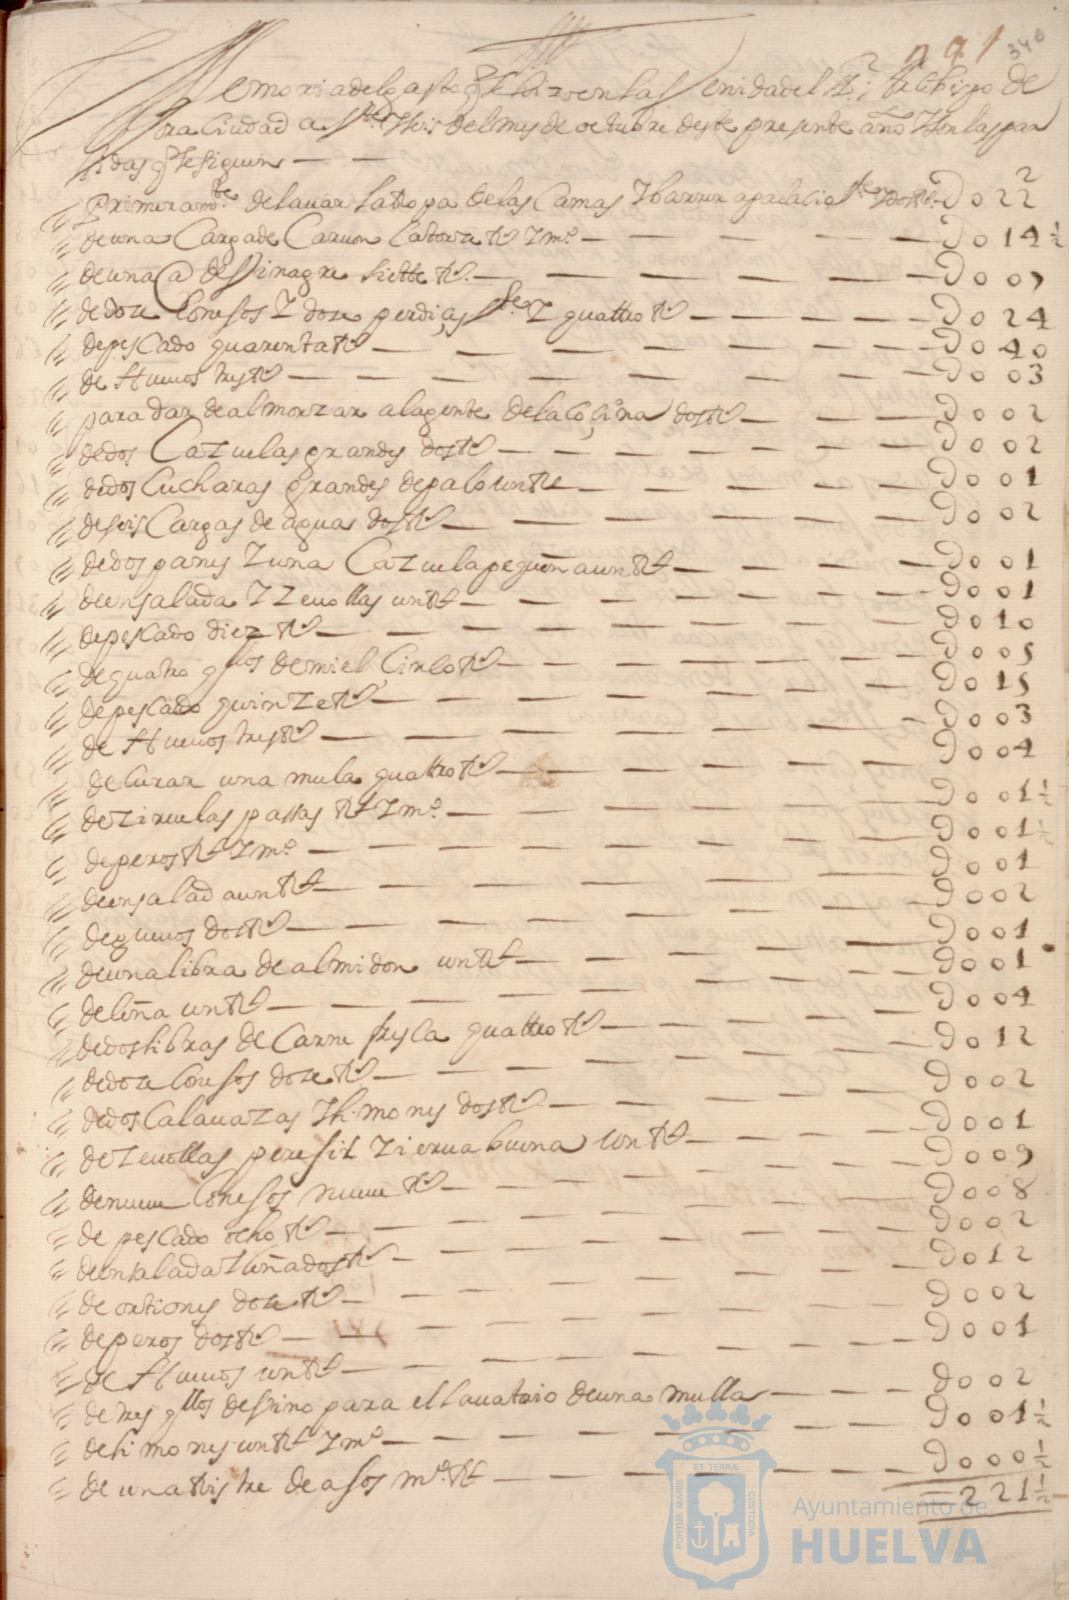 291
340
Memoria del gasto q se hizo en la Venida del Sr. Arzobispo de
Sora Ciudad a seis del mes de octubre deste presente año Y son las par
tidas q se siguen
Primeramte de lavar la Ropa de las Camas Y barrer a palacio D022
de una Carga de Carvon Catorze Rs Y mo D014½
de una @ de Vinagre siette Rs D007
de doze Conejos Y doze perdiçes Y quattro Rs D024
de pescado quarenta Rs D040
de Huevos tres Rs D003
para dar de almorzar a la gente de la Coçina dos Rs D002
de dos Cazuelas grandes dos Rs D002
de dos Cucharas grandes de palo un Rl D001
de seis Cargas de aguas dos Rs D002
de dos panes Y una Cazuela pequeña un Rl D001
de ensalada Y Zevollas un Rl D001
de pescado diez Rs D010
de quatro qllos de miel Çinco Rs D005
de pescado quinze Rs D015
de Huevos tres Rs D003
de Curar una mula quattro Rs D004
de Ziruelas passas Rl Y mo D001½
de peros Rl Y mo D001½
de ensalada un Rl D001
de guevos dos Rs D002
de una libra de almidon un Rl D001
de leña un Rl D001
de dos libras de Carne fresca quattro Rs D004
de doze Conejos doze Rs D012
de dos Calavazas Y limones dos Rs D002
de Zevollas perejil Y ierva buena un Rl D001
de nueve Conejos nueve Rs D009
de pescado ocho Rs D008
de ensalada Y leña dos Rs D002
de ostiones doze Rs D012
de peros dos Rs D002
de Huevos un Rl D001
de tres qllos de Vino para el lavatorio de una mulla D002
de limones un Rl Y mo D001½
de una Ristre de ajos mo Rl D000½
221½
PORTUS MARIS ET TERRÆ CUSTODIA
Ayuntamiento de
HUELVA